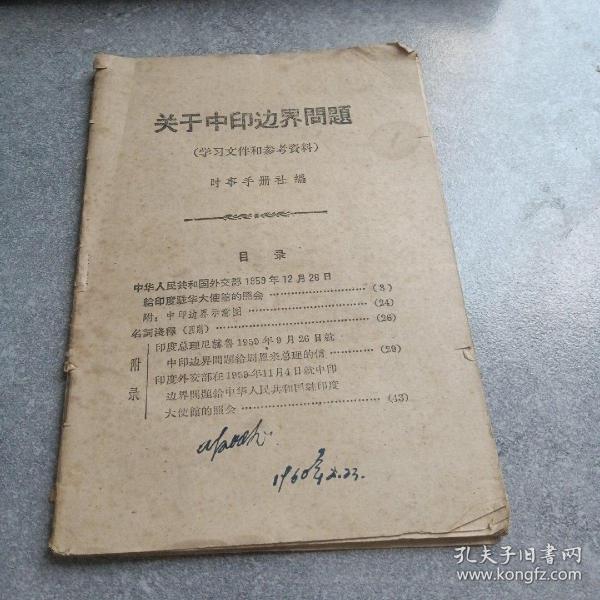 关于中印边界問題
(学习文件和参考資料)
时事手册社 編
目 录
中华人民共和国外交部1959年12月26日
給印度駐华大使館的照会 …………………… (3)
附：中印边界示意图 …………………… (24)
名詞淺釋 (四則) …………………… (26)
附录
印度总理尼赫魯1959年9月26日就
中印边界問題給周恩来总理的信 ……… (29)
印度外交部在1959年11月4日就中印
边界問題給中华人民共和国駐印度
大使館的照会 …………………… (43)
1960年2.23.
孔夫子旧书网
www.kongfz.com